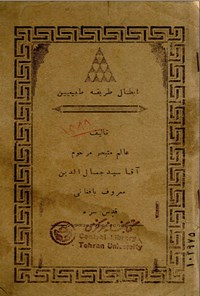 ابطال طریقه طبیعیین
تألیف
عالم متبحر مرحوم
آقا سید جمال الدین
معروف بافغانی
قیمت
Central Library
Tehran University